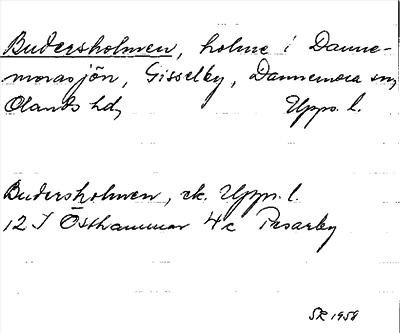 Budersholmen, holme i Danne-
morasjön, Gisselby, Dannemora sn,
Olands hd, Upps. l.
Budersholmen, ek. Upps. l.
12 I Östhammar 4c Pesarby
SR 1958